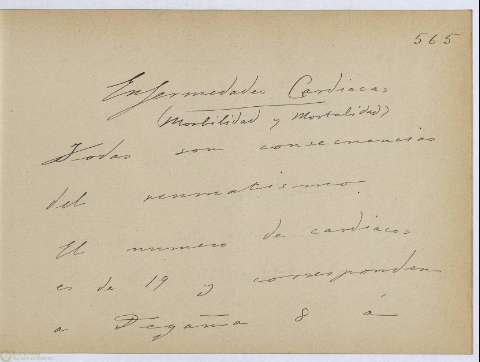 565
Enfermedades Cardiacas
(Morbilidad y Mortalidad)
Todas son consecuencias
del reumatismo.
El numero de cardiacos
es de 19 y corresponden
a Degaña 8 á